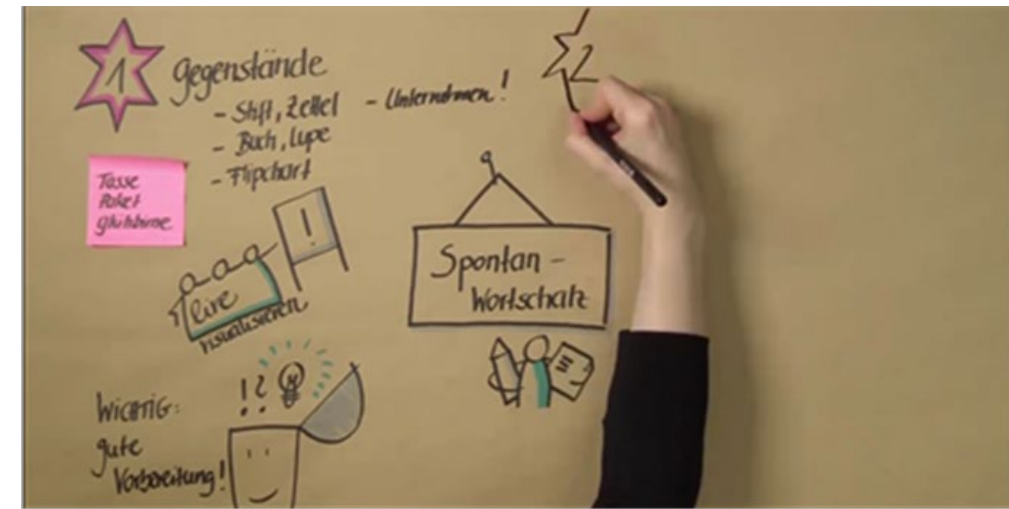 1
Gegenstände
- Stift, Zettel - Unternehmen!
- Buch, Lupe
- Flipchart
Tasse
Paket
Glühbirne
!
live
visualisieren
Spontan-
Wortschatz
!?
WICHTIG:
gute
Vorbereitung!
2